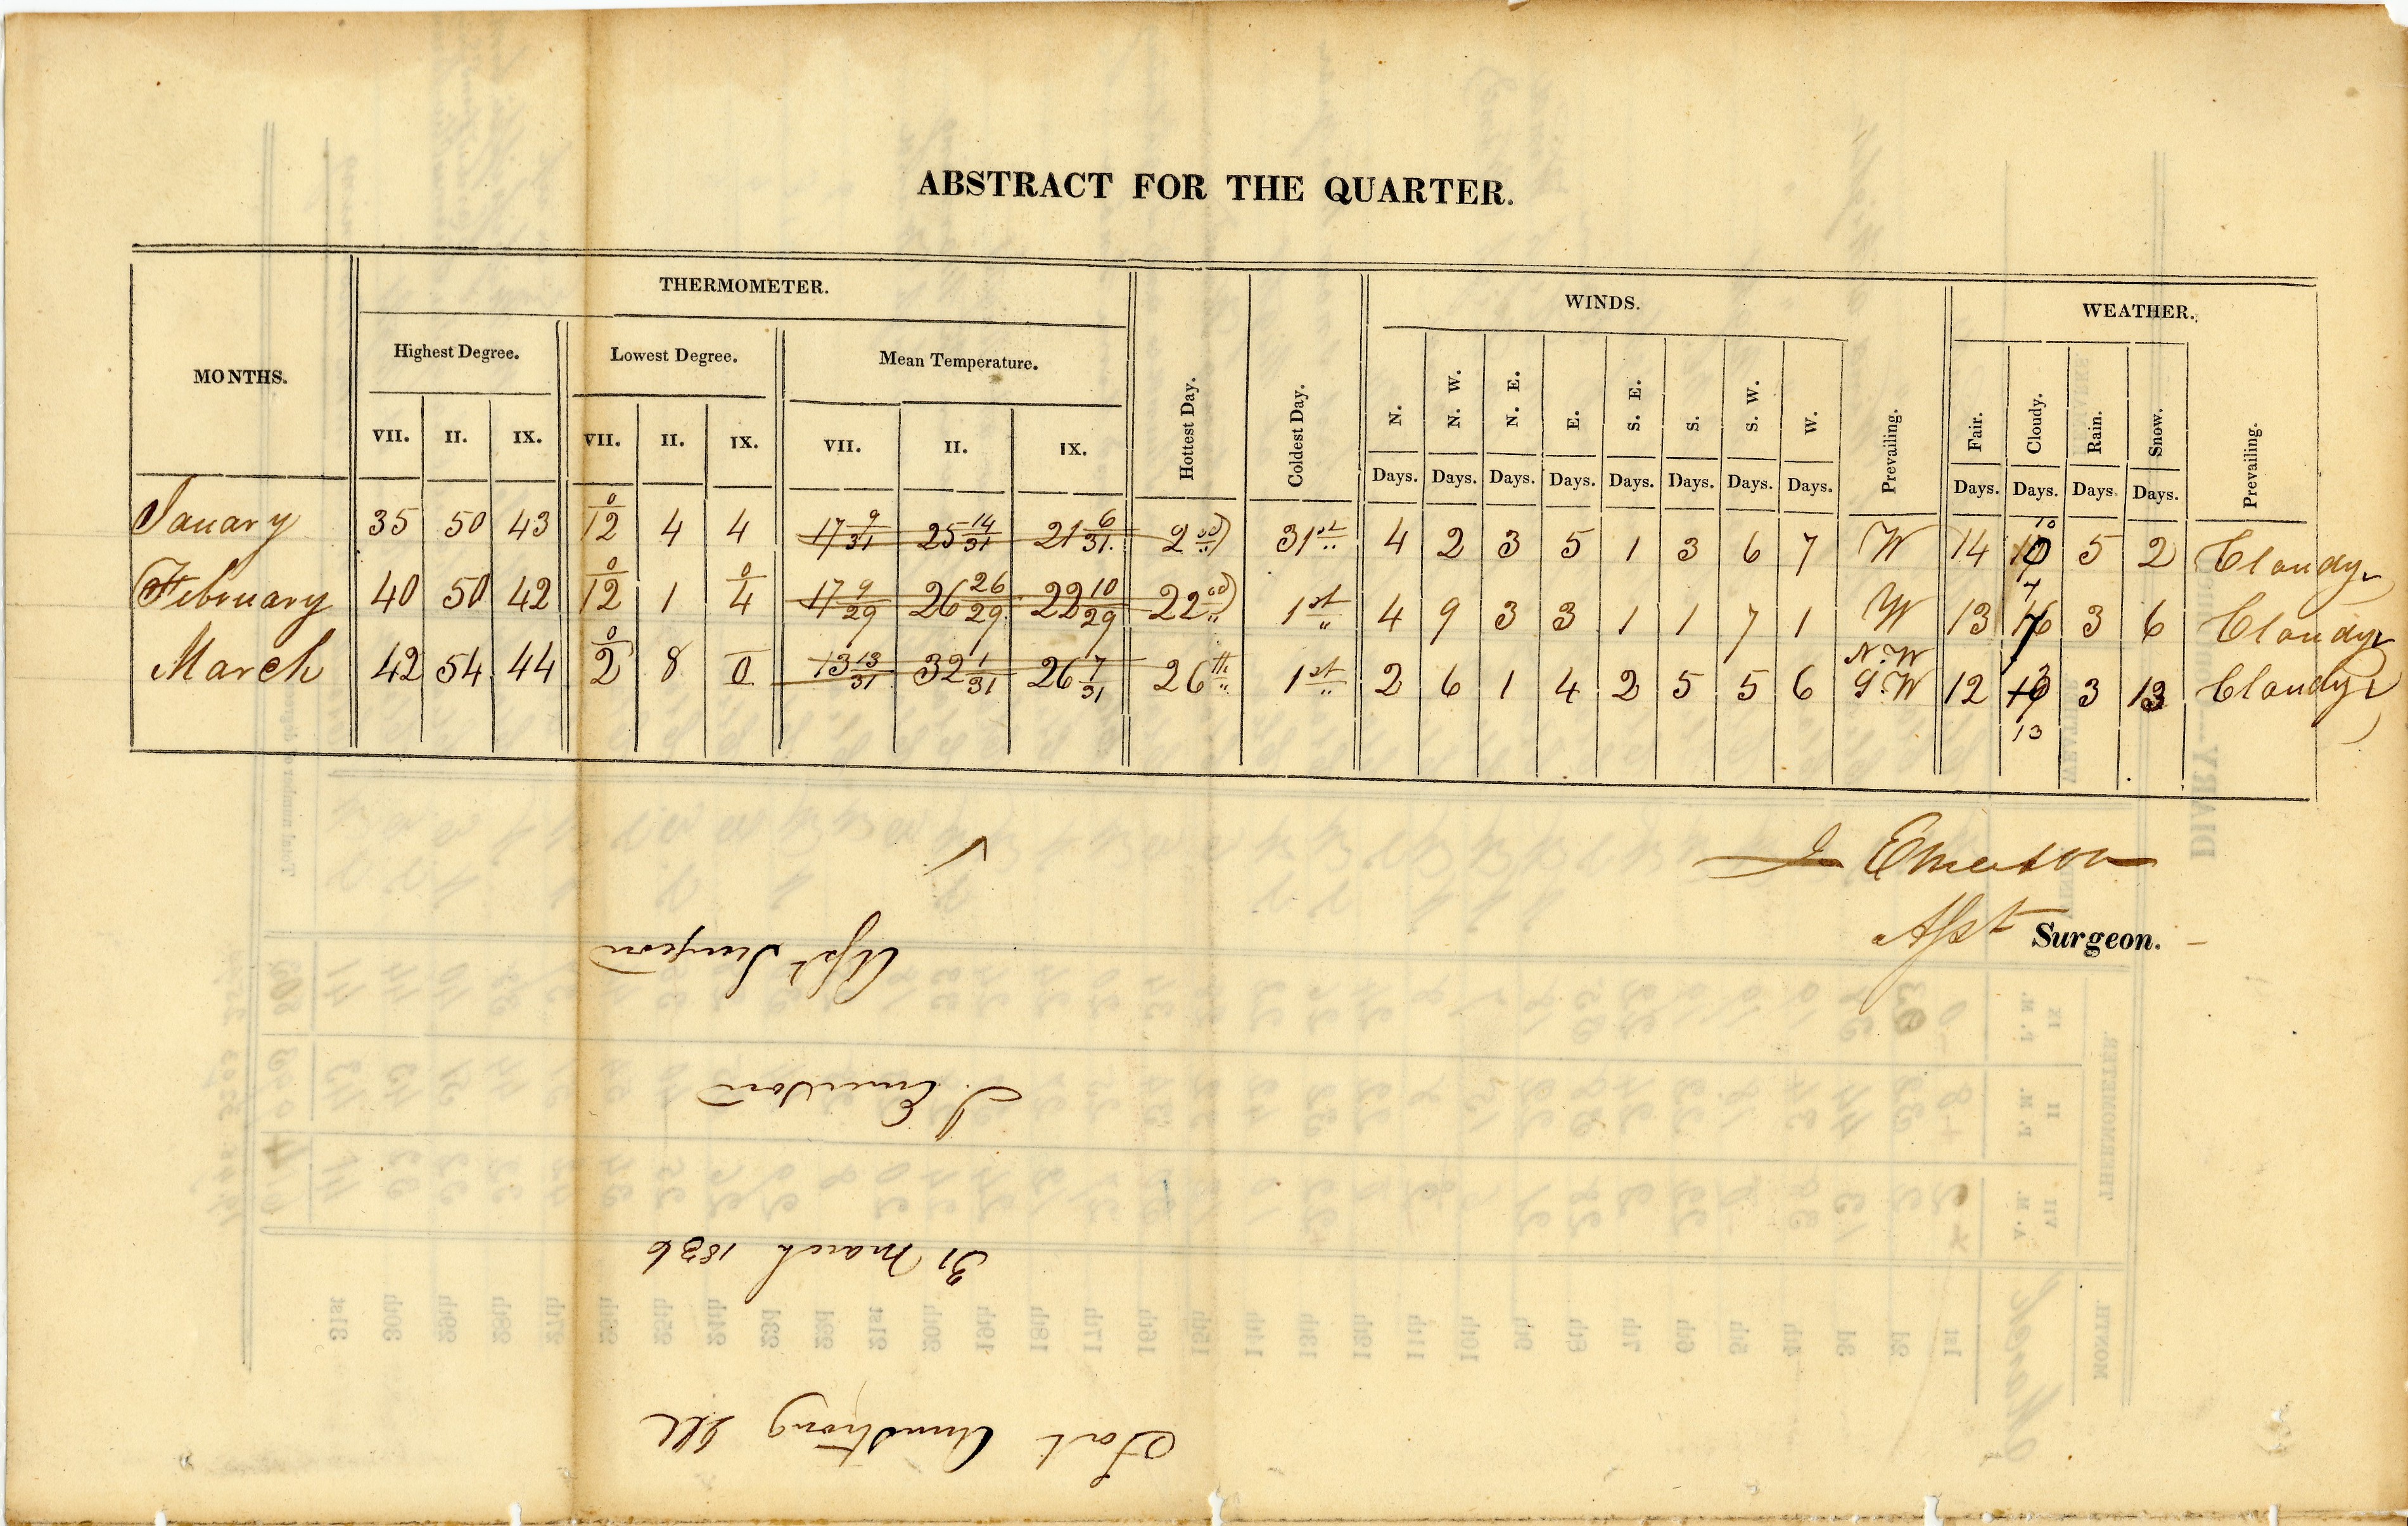 ABSTRACT FOR THE QUARTER.
THERMOMETER. WINDS. WEATHER.
MONTHS. Highest Degree. Lowest Degree. Mean Temperature. Hottest Day. Coldest Day. N. N. W. N. E. E. S. E. S. S. W. W. Prevailing. Fair. Cloudy. Rain. Snow. Prevailing.
VII. II. IX. VII. II. IX. VII. II. IX. Days. Days. Days. Days. Days. Days. Days. Days. Days. Days. Days. Days.
January 35 50 43 0/12 4 4 17 9/31 25 14/31 21 6/31. 2nd 31st 4 2 3 5 1 3 6 7 W 14 10 5 2 Cloudy
February 40 50 42 0/12 1 0/4 17 9/29 26 26/29 22 10/29 22nd 1st 4 9 3 3 1 1 7 1 W 13 7 3 6 Cloudy
March 42 54 44 0/2 8 0 13 13/31 32 1/31 26 7/31 26th 1st 2 6 1 4 2 5 5 6 N.W S.W 12 3 3 13 Cloudy
13
J Emerson
Asst Surgeon.
Fort Armstrong Ill
31 March 1836
J. Emerson
Asst Surgeon